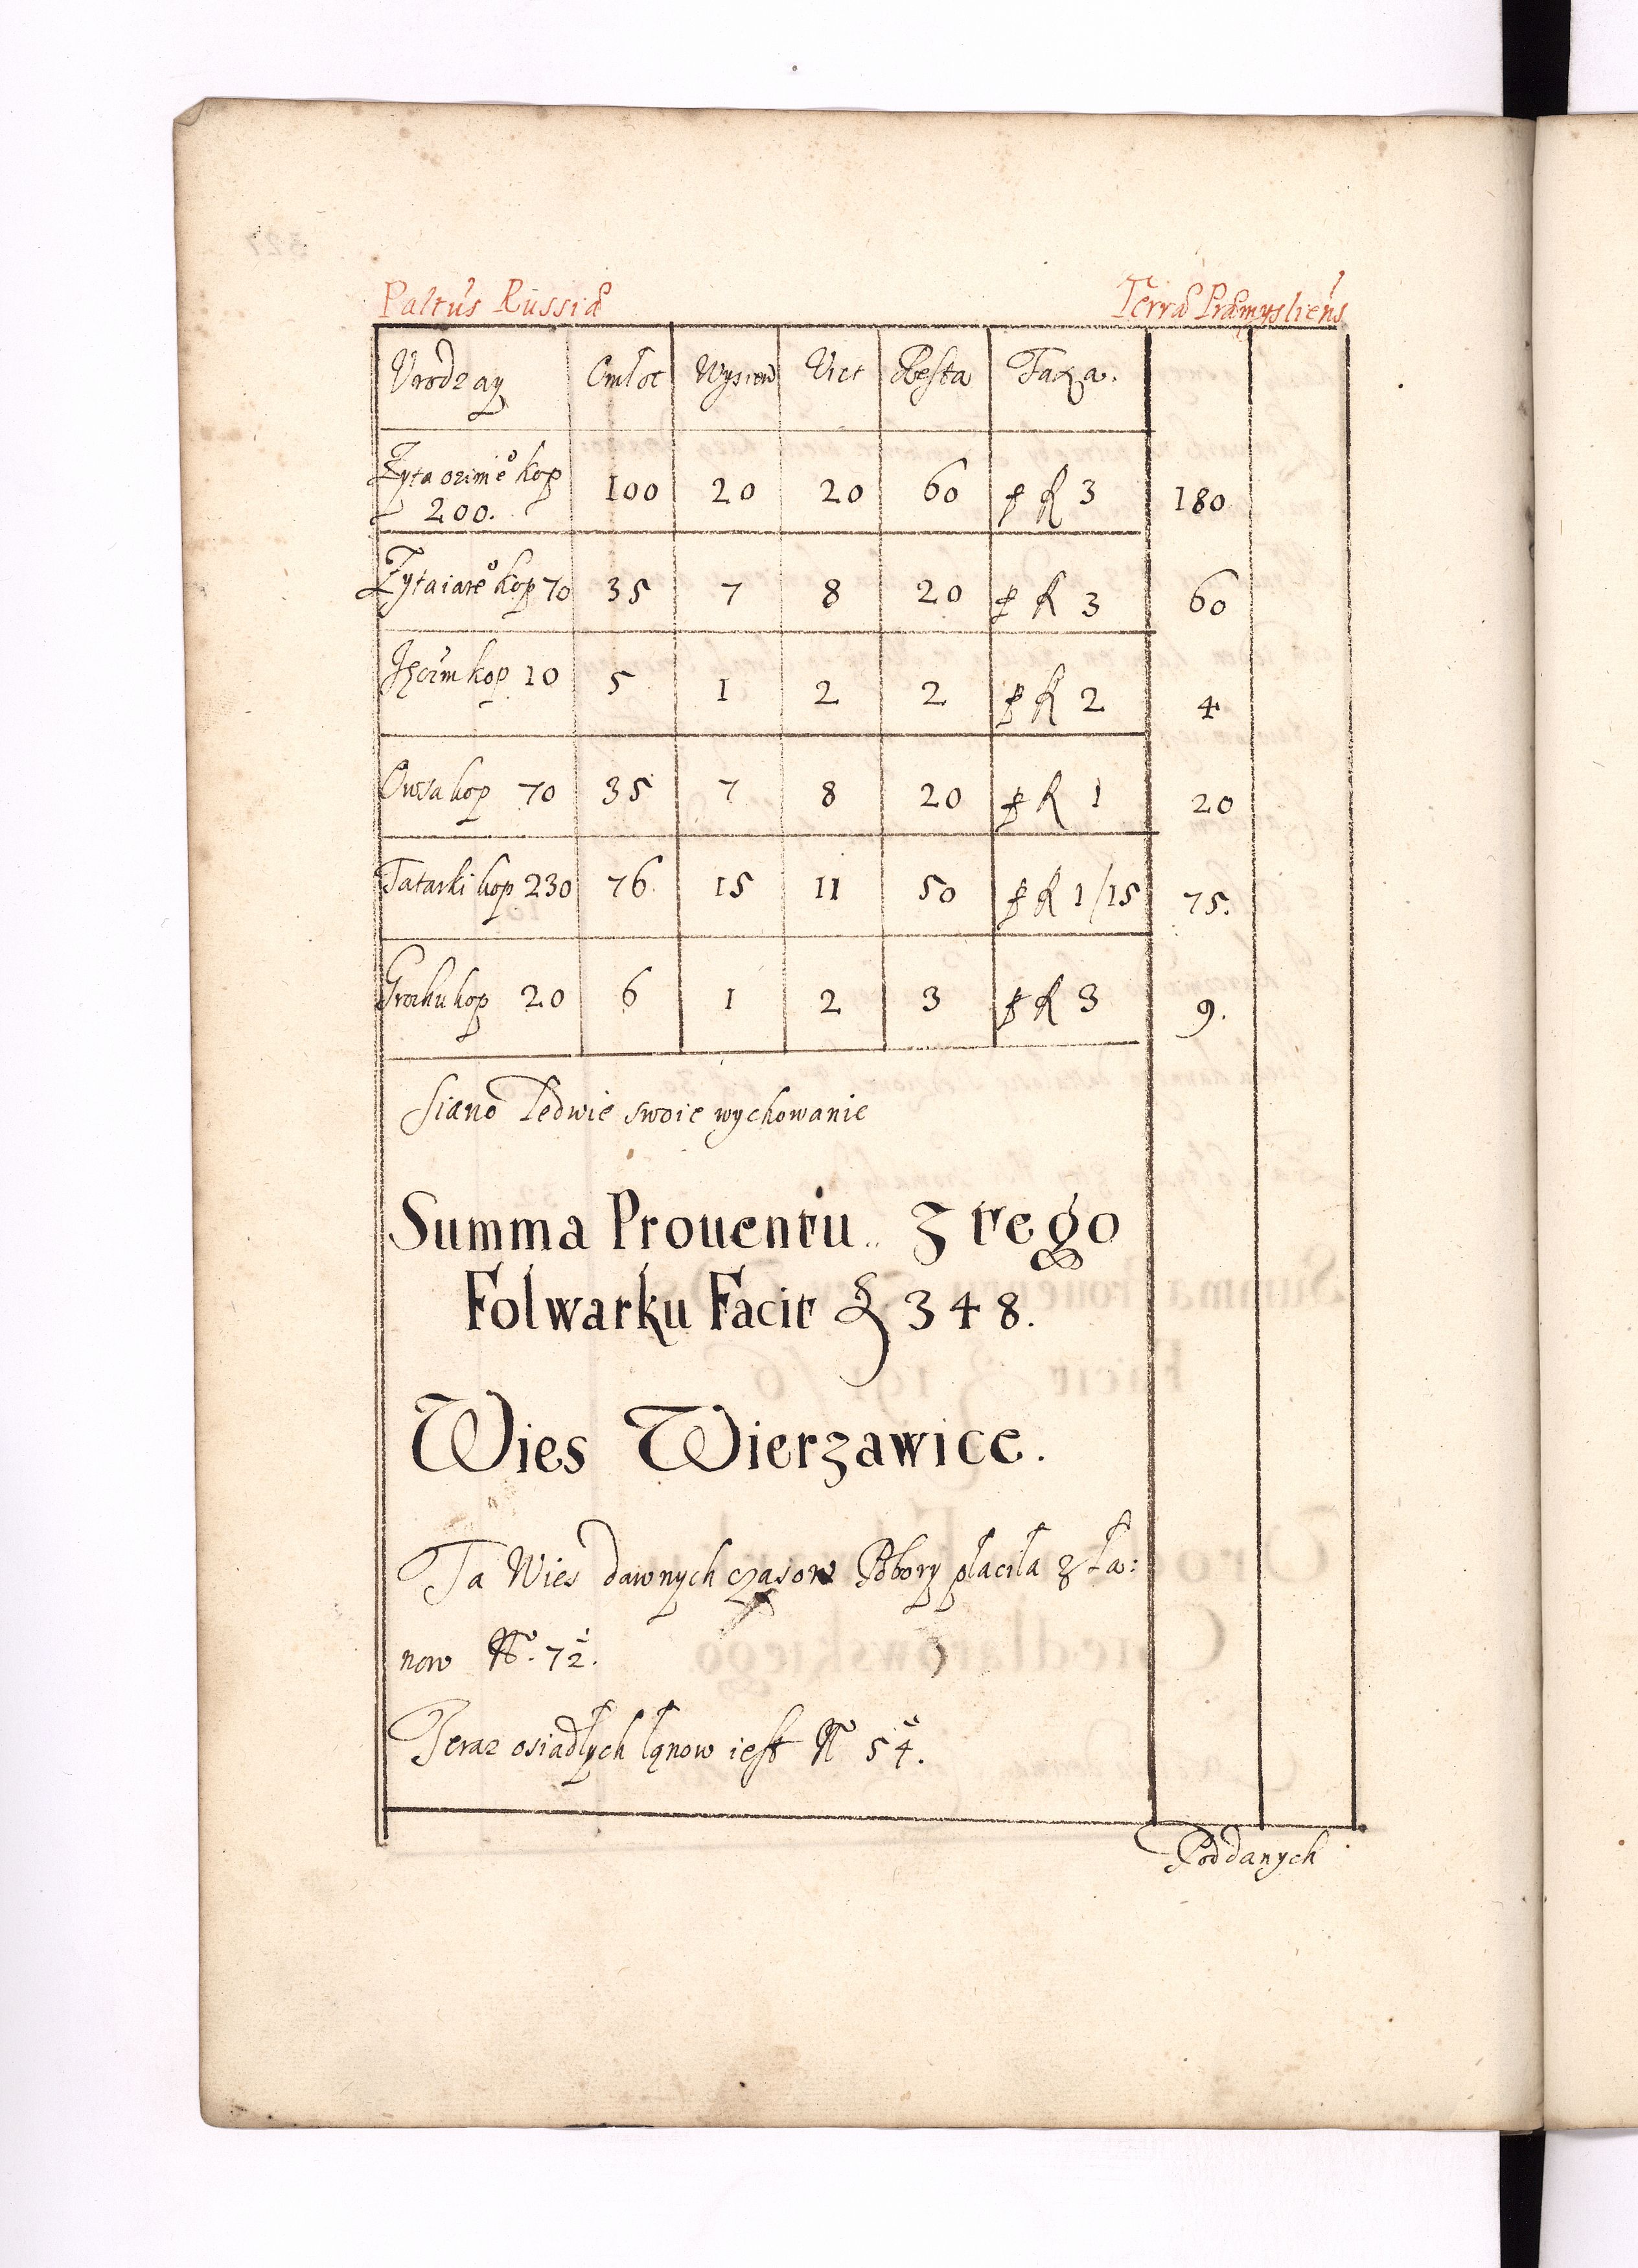 Paltus Russiæ Terræ Præmysliens
Vrodzay Omłot Wysiew Vict Resta Taxa.
Zyta ozime° kop
200. 100 20 20 60 p 3 180
Zyta iare° kop 70 35 7 8 20 p 3 60
Jęczm kop 10 5 1 2 2 p 2 4
Owsa kop 70 35 7 8 20 p 1 20
Tatarki kop 230 76 15 11 50 p 1/15 75.
Grochu kop 20 6 1 2 3 p 3 9.
Siano Ledwie swoie wychowanie
Summa Prouentu z tego
Folwarku Facit 348.
Wies Wierzawice.
Ta Wies dawnych czasow Pobory płaciła z Ła:
now N°. 72.
Teraz osiadłych łąnow iest N° 54.
Poddanych